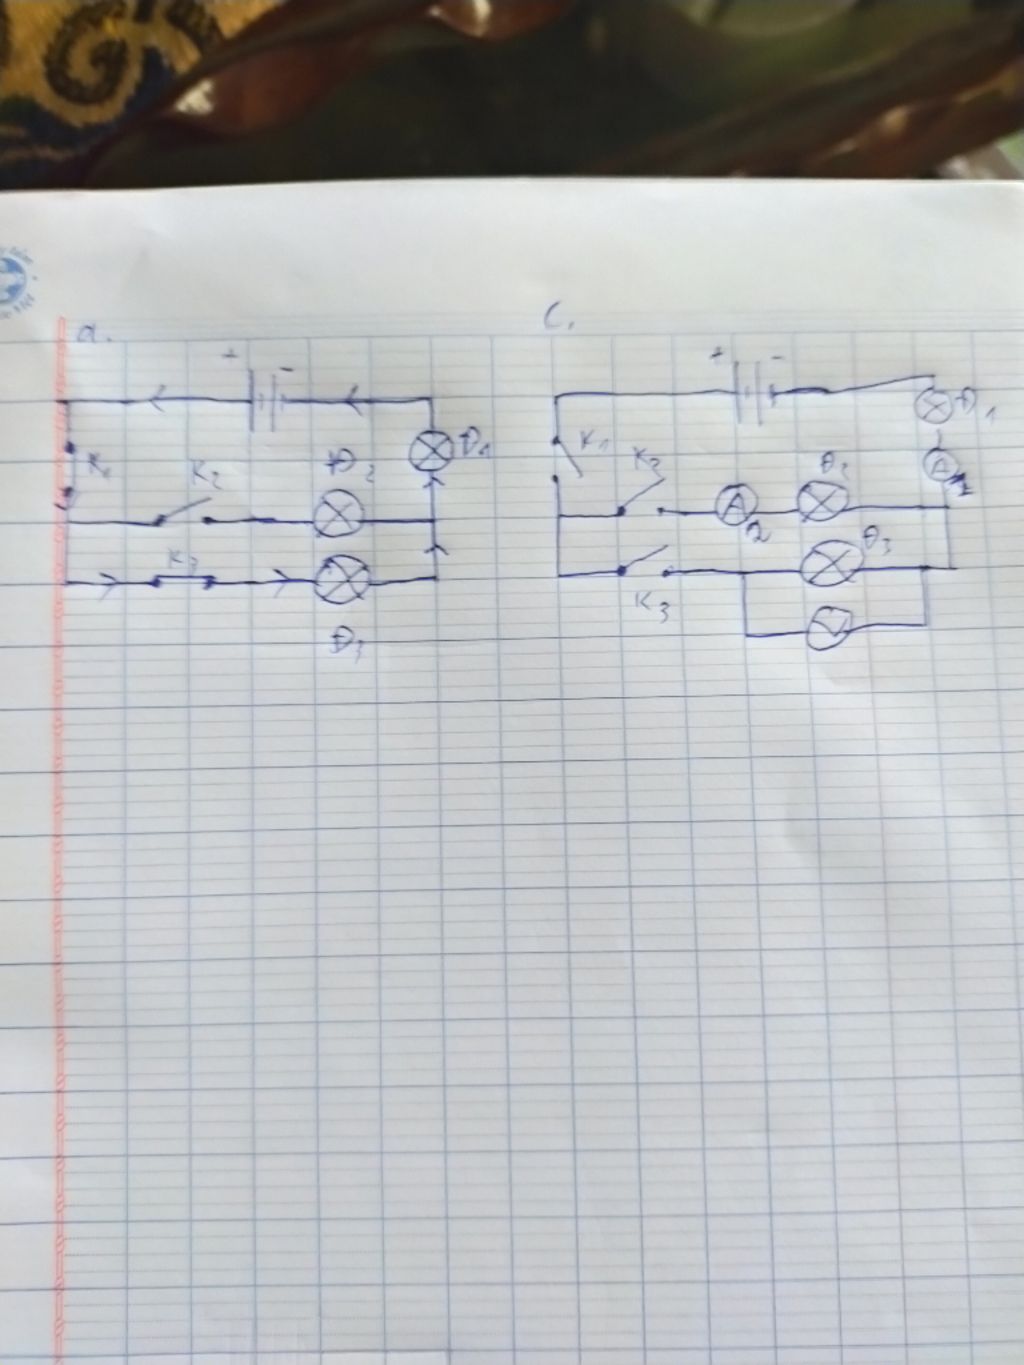 a.
+ -
K1
K2
Đ2
Đ1
K3
Đ3
C.
+ -
Đ1
K1
K2
A
2
Đ2
A
1
K3
Đ3
V